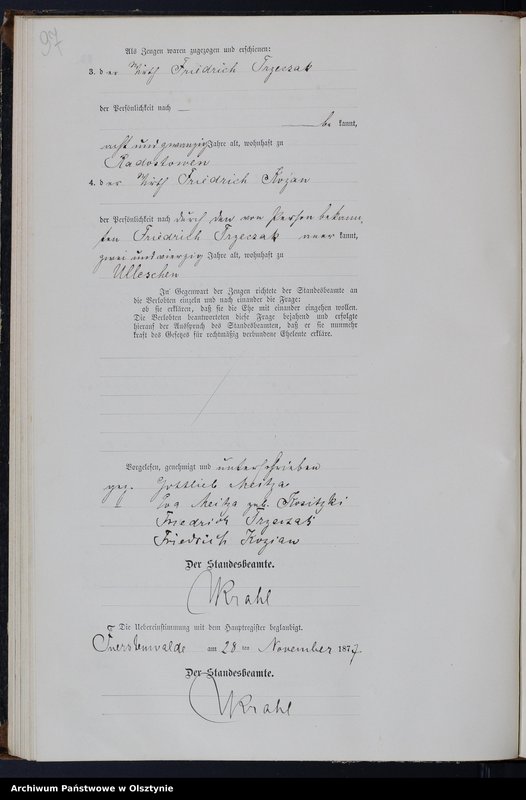 97
Als Zeugen waren zugezogen und erschienen:
3. der Wirth Friedrich Trzeczak
der Persönlichkeit nach —
be kannt,
acht und zwanzig Jahre alt, wohnhaft zu
Radostowen
4. der Wirth Friedrich Kozian
der Persönlichkeit nach durch den von Person bekann-
ten Friedrich Trzeczak aner kannt,
zwei und vierzig Jahre alt, wohnhaft zu
Ulleschen
In Gegenwart der Zeugen richtete der Standesbeamte an
die Verlobten einzeln und nach einander die Frage:
ob sie erklären, daß sie die Ehe mit einander eingehen wollen.
Die Verlobten beantworteten diese Frage bejahend und erfolgte
hierauf der Ausspruch des Standesbeamten, daß er sie nunmehr
kraft des Gesetzes für rechtmäßig verbundene Eheleute erkläre.
Vorgelesen, genehmigt und unterschrieben
gez. Gottlieb Meitza
Eva Meitza geb. Kositzki
Friedrich Trzeczak
Friedrich Kozian
Der Standesbeamte.
Krahl
Die Uebereinstimmung mit dem Hauptregister beglaubigt.
Fuerstenwalde am 28 ten November 1877
Der Standesbeamte.
Krahl
Archiwum Państwowe w Olsztynie